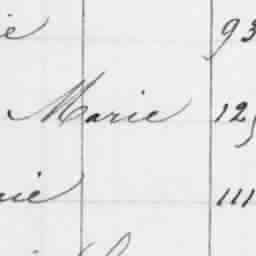 ie 93
Marie 125
nie 111